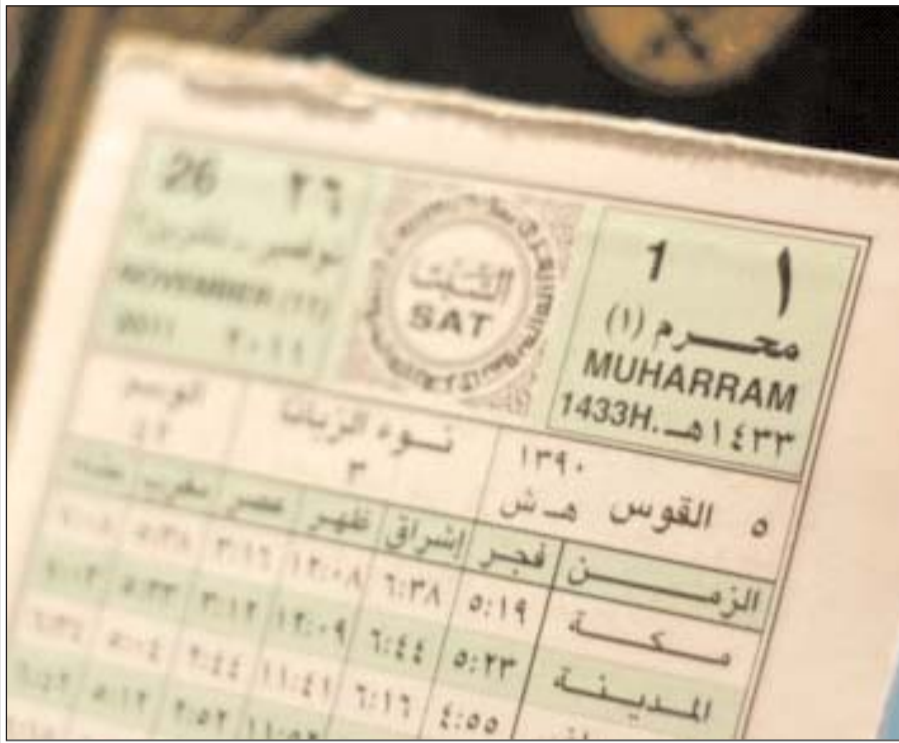 26 ٢٦
NOVEMBER (١١)
2011 ٢٠١١
السبت
SAT
1 ١
محرم (١)
MUHARRAM
1433H. ١٤٣٣هـ
الوسم
٤٢
نوء الزبانا
٣
١٣٩٠
٥ القوس هـ ش
الزمن فجر إشراق ظهر عصر مغرب عشاء
مكة ٥:١٩ ٦:٣٨ ١٢:٠٨ ٣:١٦ ٥:٣٨ ٧:٠٨
المدينة ٥:٢٣ ٦:٤٤ ١٢:٠٩ ٣:١٢ ٥:٣٣ ٧:٠٣
٤:٥٥ ٦:١٦ ١١:٤١ ٢:٤٤ ٥:٠٤ ٦:٣٤